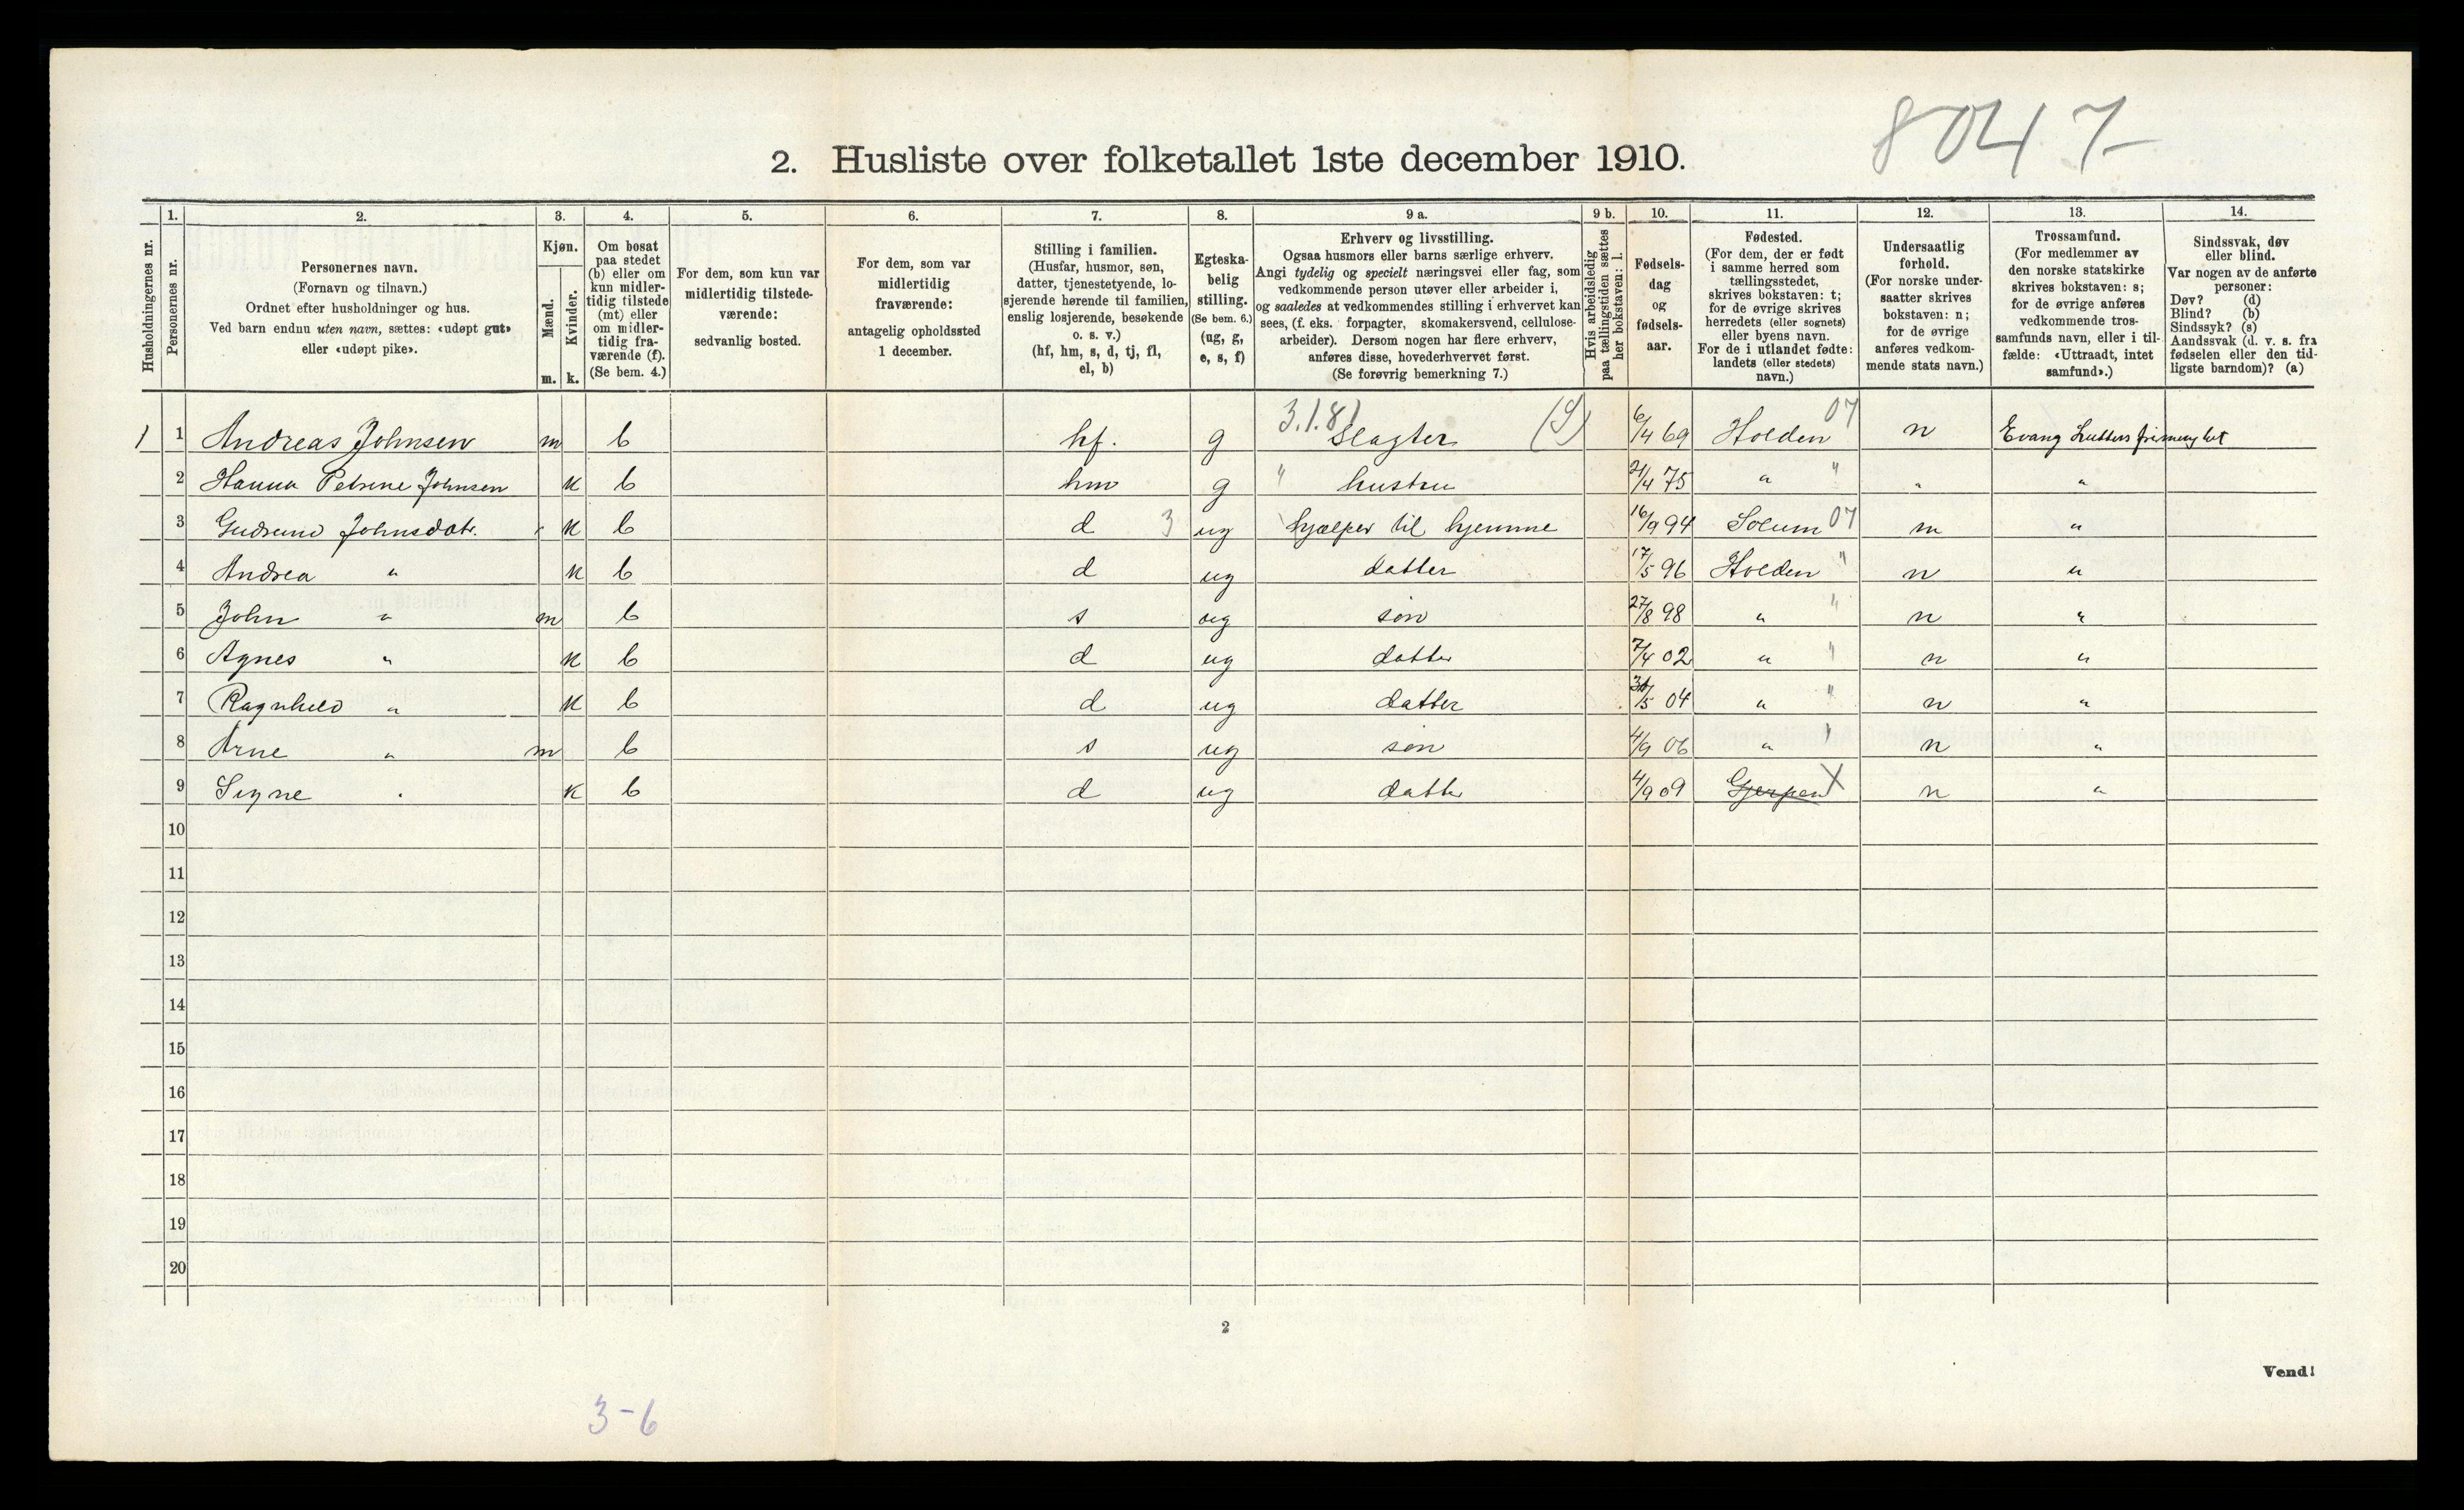 8047
2. Husliste over folketallet 1ste december 1910.
Husholdningernes nr.
1.
Personernes nr.
2.
Personernes navn.
(Fornavn og tilnavn.)
Ordnet efter husholdninger og hus.
Ved barn endnu uten navn, sættes: «udøpt gut»
eller «udøpt pike».
3.
Kjøn.
Mænd.
Kvinder.
m. k.
4.
Om bosat
paa stedet
(b) eller om
kun midler-
tidig tilstede
(mt) eller
om midler-
tidig fra-
værende (f).
(Se bem. 4.)
5.
For dem, som kun var
midlertidig tilstede-
værende:
sedvanlig bosted.
6.
For dem, som var
midlertidig
fraværende:
antagelig opholdssted
1 december.
7.
Stilling i familien.
(Husfar, husmor, søn,
datter, tjenestetyende, lo-
sjerende hørende til familien,
enslig losjerende, besøkende
o. s. v.)
(hf, hm, s, d, tj, fl,
el, b)
8.
Egteska-
belig
stilling.
(Se bem. 6.)
(ug, g,
e, s, f)
9 a.
Erhverv og livsstilling.
Ogsaa husmors eller barns særlige erhverv.
Angi tydelig og specielt næringsvei eller fag, som
vedkommende person utøver eller arbeider i,
og saaledes at vedkommendes stilling i erhvervet kan
sees, (f. eks. forpagter, skomakersvend, cellulose-
arbeider). Dersom nogen har flere erhverv,
anføres disse, hovederhvervet først.
(Se forøvrig bemerkning 7.)
9 b.
Hvis arbeidsledig
paa tællingstiden sættes
her bokstaven: l.
10.
Fødsels-
dag
og
fødsels-
aar.
11.
Fødested.
(For dem, der er født
i samme herred som
tællingsstedet,
skrives bokstaven: t;
for de øvrige skrives
herredets (eller sognets)
eller byens navn.
For de i utlandet fødte:
landets (eller stedets)
navn.)
12.
Undersaatlig
forhold.
(For norske under-
saatter skrives
bokstaven: n;
for de øvrige
anføres vedkom-
mende stats navn.)
13.
Trossamfund.
(For medlemmer av
den norske statskirke
skrives bokstaven: s;
for de øvrige anføres
vedkommende tros-
samfunds navn, eller i til-
fælde: «Uttraadt, intet
samfund».)
14.
Sindssvak, døv
eller blind.
Var nogen av de anførte
personer:
Døv? (d)
Blind? (b)
Sindssyk? (s)
Aandssvak (d. v. s. fra
fødselen eller den tid-
ligste barndom)? (a)
1 1 Andreas Johnsen m b hf. g 3.1.8) Slagter (S) 6/4 69 Holden 07 n Evang
2 Hanna Petrine Johnsen k b hm g " hustru 21/4 75 " " " "
3 Gudrund Johnsdatr. k b d 3 ug hjælper til hjemme 16/9 94 Solum 07 n "
4 Andrea " k b d ug datter 17/5 96 Holden " n "
5 John " m b s ug søn 27/8 98 " " n "
6 Agnes " k b d ug datter 7/4 02 " " n "
7 Ragnhild " k b d ug datter /5 04 " " n "
8 Arne " m b s ug søn 4/9 06 " " n "
9 Signe " k b d ug datter 4/9 09 Gjerpen X n "
10
11
12
13
14
15
16
17
18
19
20
2
Vend!
3-6